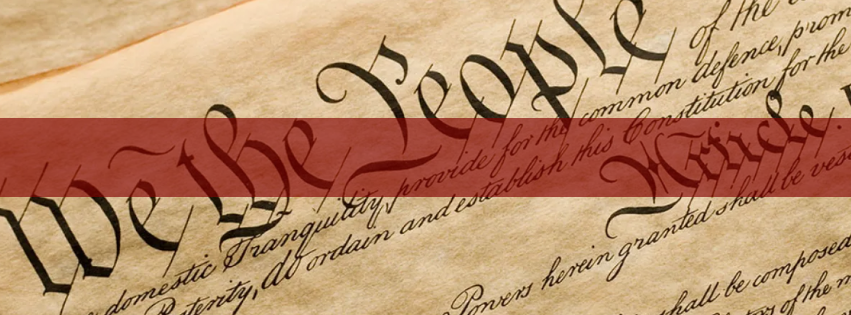 We the People of the
domestic Tranquility, provide for the common defence, prom
Posterity, do ordain and establish this Constitution for the
Article
Powers herein granted shall be ves
shall be composed
of the m